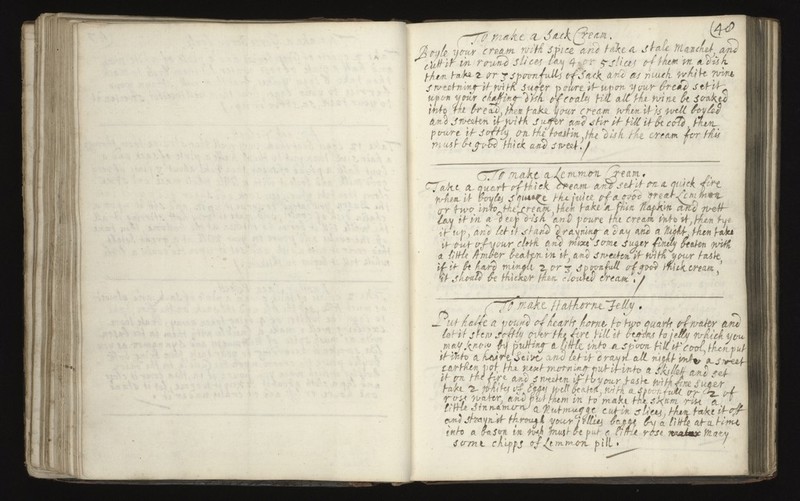 (48
To make a Sack Cream.
Boyle your cream with spice and take a stale Manchet, and
cutt it in round slices lay 4 or 5 slices of them in a dish
then take 2 or 3 spoonfulls of Sack and as much white wine
sweetning it with Suger poure it upon your bread set it
upon your chaffing dish of coales till all the wine be soaked
into the bread, then take your cream when it is well boyled
and sweeten it with suger and stir it till it be cold, then
poure it softly on the toast in the dish the cream for this
must be good thick and sweet.
To make a Lemmon Cream.
Take a quart of thick cream and set it on a quick fire
when it boyles squeeze the juice of a good great Lemmon
or two into the cream, then take a thin Napkin and wett
lay it in a deep dish and poure the cream into it, then tye
it up, and let it stand drayning a day and a Night, then take
it out of your cloth and mixe some suger finely beaten with
a little Amber beaten in it, and sweeten it with your taste,
if it be hard mingle 2 or 3 spoonfull of good thick cream,
it should be thicker then clouted cream.
To make Hathorne Jelly.
Put halfe a pound of hearts horne to two quarts of water and
let it stew softly over the fire till it begins to jelly which you
may know by putting a little into a spoon till it cool, then put
it into a haire Seive and let it drayn all night into a sweet
earthen pot the next morning put it into a Skillet and set
it on the fire and sweeten it to your taste with fine suger
take 2 whites of egges well beated, with a spoonfull or 2 of
rose water, and put them in to make the skum rise a
little Sinnamon a Nutmugge cut in slices, then take it off
and strayn it through your jellies bagge by a little at a time
into a bason in wch must be put a little rose Macy
some chipps of Lemmon pill.